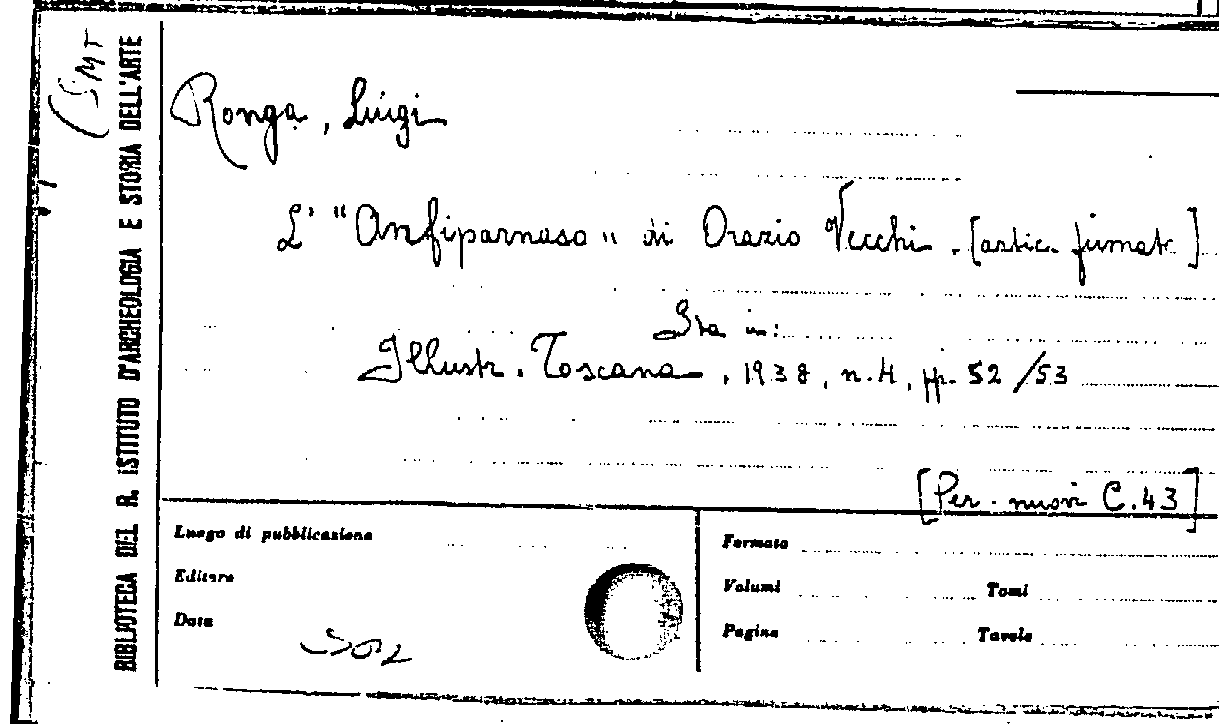 SMT
BIBLIOTECA DEL R. ISTITUTO D'ARCHEOLOGIA E STORIA DELL'ARTE
Ronga, Luigi
L' "Anfiparnaso" di Orazio Vecchi. [artic. firmato]
Sta in:
Illustr. Toscana, 1938, n. 4, pp. 52/53
[Per. nuovi C.43]
Luogo di pubblicazione
Editore
Data
Formato
Volumi Tomi
Pagine Tavole